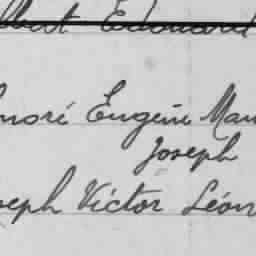 lbert Edouard
onoré Eugène Mau
Joseph
seph Victor Léon